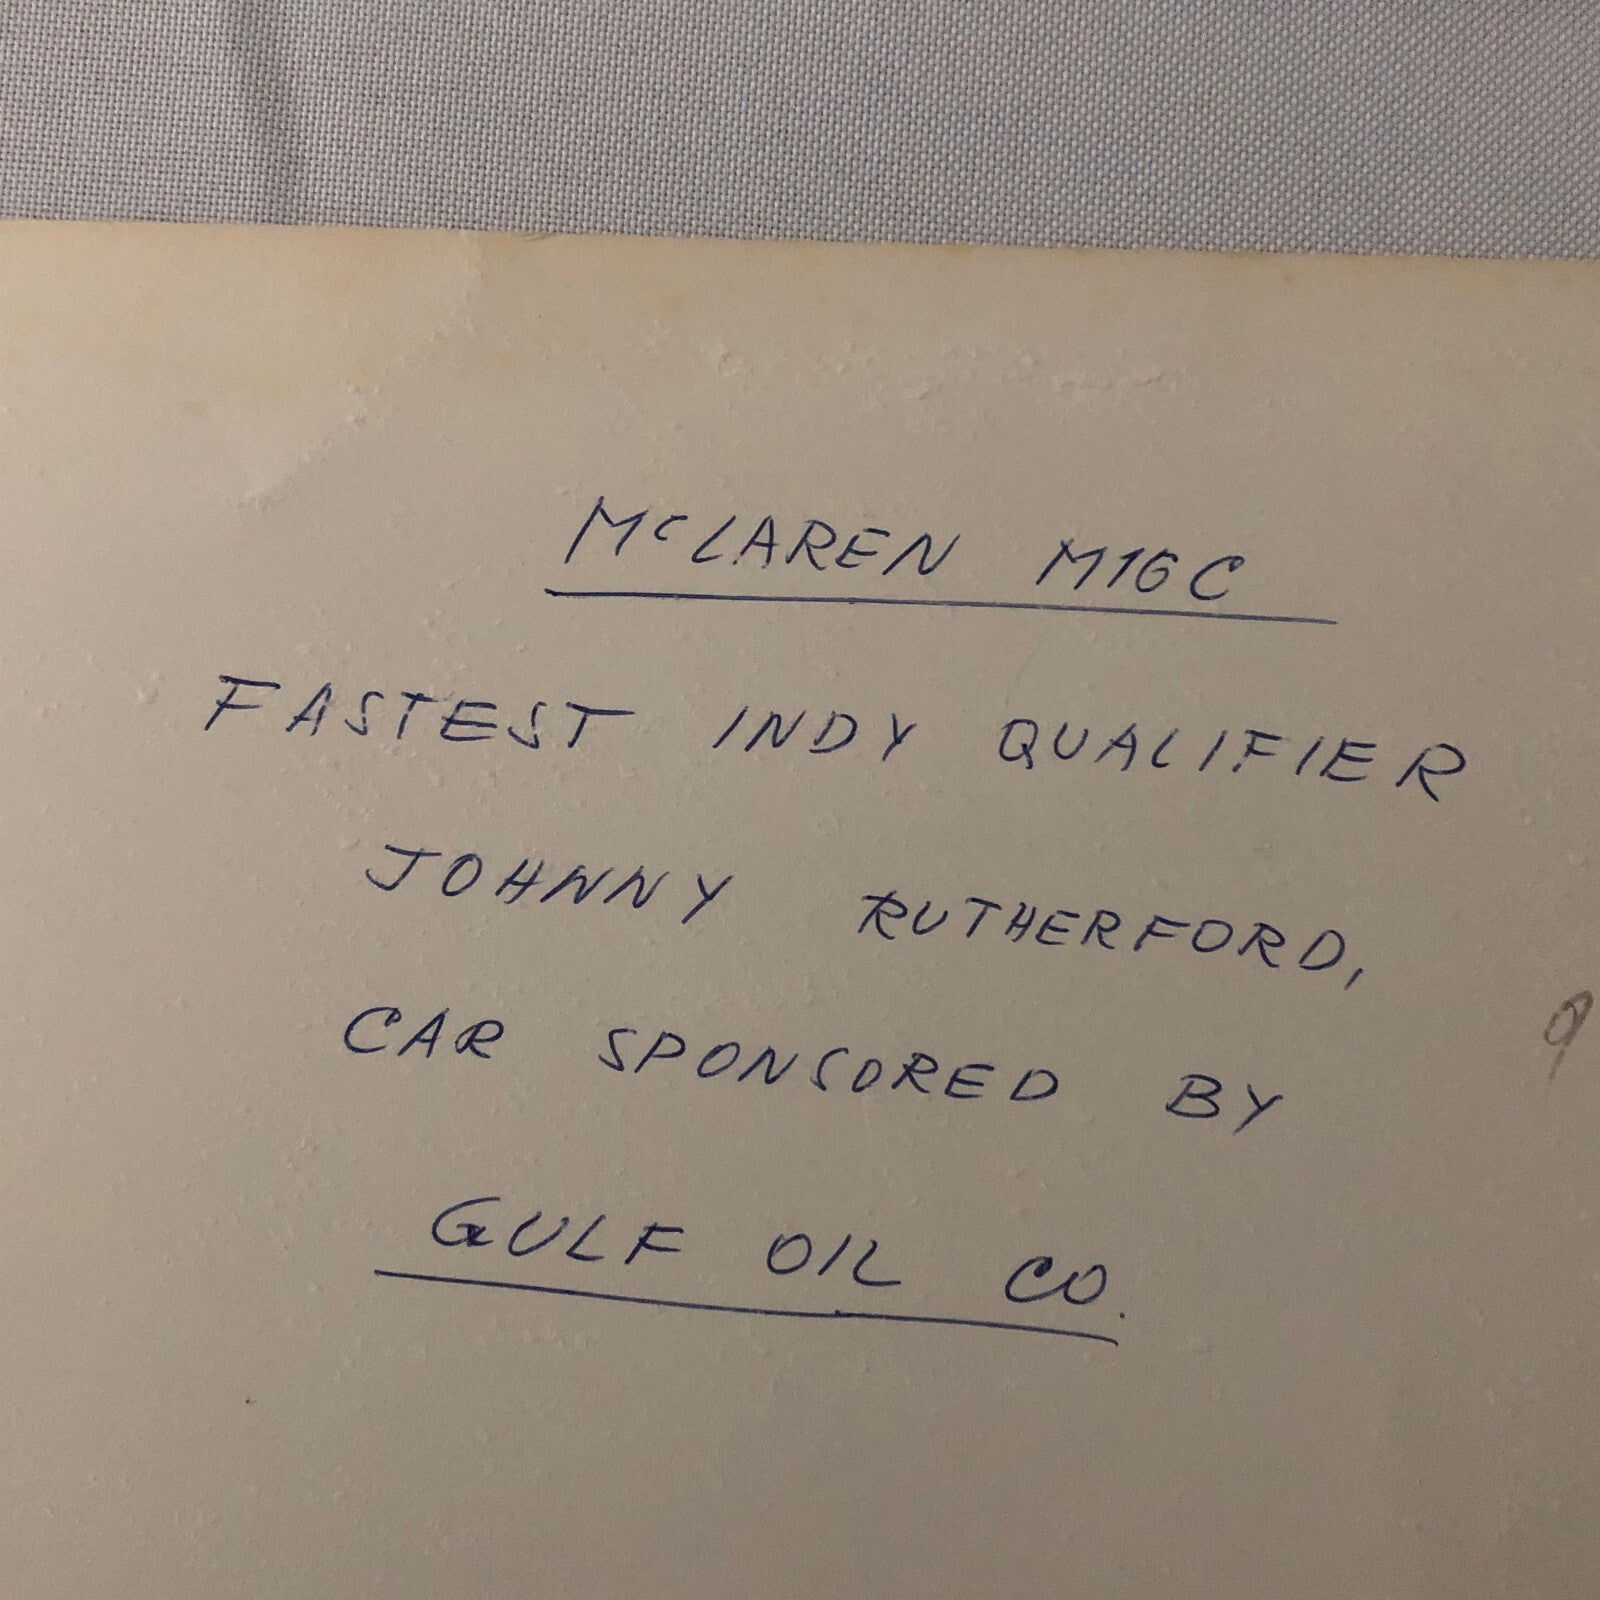 McLAREN M16C
FASTEST INDY QUALIFIER
JOHNNY RUTHERFORD,
CAR SPONSORED BY
GULF OIL CO.
9